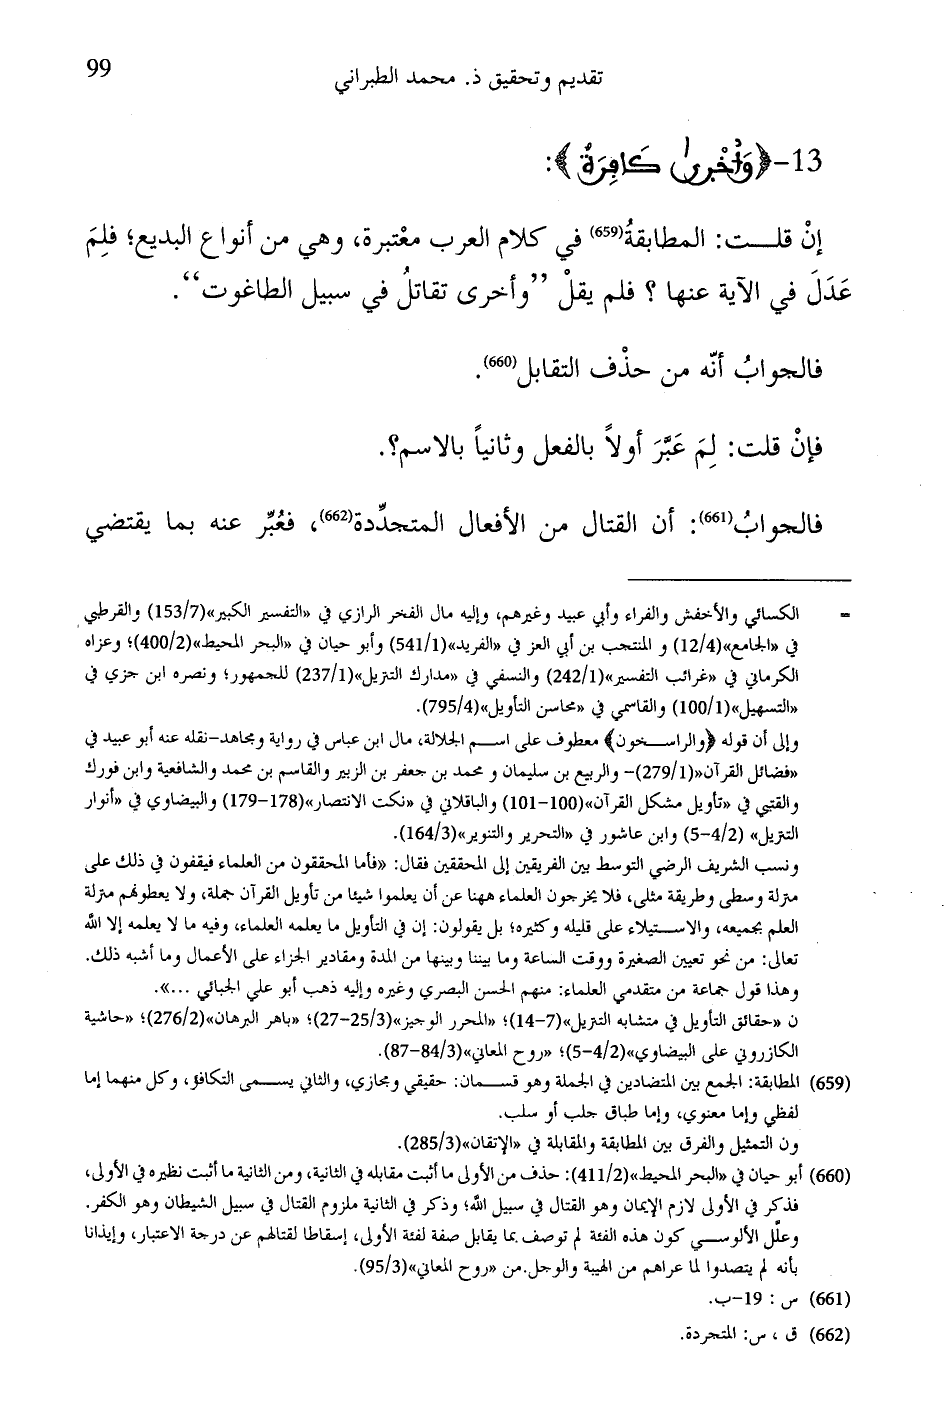 تقديم وتحقيق ذ. محمد الطبراني
99
13-﴿وَأُخْرىٰ كَافِرَةٌ﴾:
إنْ قلــت: المطابقةُ(659) في كلام العرب معْتبرة، وهي من أنواع البديع؛ فلِمَ
عَدَلَ في الآية عنها ؟ فلم يقلْ ”وأخرى تقاتلُ في سبيل الطاغوت“.
فالجوابُ أنّه من حذْف التقابل(660).
فإنْ قلت: لِمَ عَبَّرَ أولاً بالفعل وثانياً بالاسم؟.
فالجوابُ(661): أن القتال من الأفعال المتجدِّدة(662)، فعُبِّر عنه بما يقتضي
= الكسائي والأخفش والفراء وأبي عبيد وغيرهم، وإليه مال الفخر الرازي في «التفسير الكبير»(153/7) والقرطبي
في «الجامع»(12/4) و المنتجب بن أبي العز في «الفريد»(541/1) وأبو حيان في «البحر المحيط»(400/2)؛ وعزاه
الكرماني في «غرائب التفسير»(242/1) والنسفي في «مدارك التنزيل»(237/1) للجمهور؛ ونصره ابن جزي في
«التسهيل»(100/1) والقاسمي في «محاسن التأويل»(795/4).
وإلى أن قوله ﴿والراسـخون﴾ معطوف على اسـم الجلالة، مال ابن عباس في رواية ومجاهد-نقله عنه أبو عبيد في
«فضائل القرآن«(279/1)- والربيع بن سليمان و محمد بن جعفر بن الزبير والقاسم بن محمد والشافعية وابن فورك
والقتبي في «تأويل مشكل القرآن»(100-101) والباقلاني في «نكت الانتصار»(178-179) والبيضاوي في «أنوار
التنزيل» (4/2-5) وابن عاشور في «التحرير والتنوير»(164/3).
ونسب الشريف الرضي التوسط بين الفريقين إلى المحققين فقال: «فأما المحققون من العلماء فيقفون في ذلك على
منزلة وسطى وطريقة مثلى، فلا يخرجون العلماء ههنا عن أن يعلموا شيئا من تأويل القرآن جملة، ولا يعطوهم منزلة
العلم بجميعه، والاسـتيلاء على قليله وكثيره؛ بل يقولون: إن في التأويل ما يعلمه العلماء، وفيه ما لا يعلمه إلا الله
تعالى: من نحو تعيين الصغيرة ووقت الساعة وما بيننا وبينها من المدة ومقادير الجزاء على الأعمال وما أشبه ذلك.
وهذا قول جماعة من متقدمي العلماء: منهم الحسن البصري وغيره وإليه ذهب أبو علي الجبائي ...».
ن «حقائق التأويل في متشابه التنزيل»(7-14)؛ «المحرر الوجيز»(25/3-27)؛ «باهر البرهان»(276/2)؛ «حاشية
الكازروني على البيضاوي»(4/2-5)؛ «روح المعاني»(84/3-87).
(659) المطابقة: الجمع بين المتضادين في الجملة وهو قسـمان: حقيقي ومجازي، والثاني يســمى التكافؤ، وكل منهما إما
لفظي وإما معنوي، وإما طباق جلب أو سلب.
ون التمثيل والفرق بين المطابقة والمقابلة في «الإتقان»(285/3).
(660) أبو حيان في «البحر المحيط»(411/2): حذف من الأولى ما أثبت مقابله في الثانية، ومن الثانية ما أثبت نظيره في الأولى،
فذكر في الأولى لازم الإيمان وهو القتال في سبيل الله؛ وذكر في الثانية ملزوم القتال في سبيل الشيطان وهو الكفر.
وعلّل الألوســي كون هذه الفئة لم توصف بما يقابل صفة لفئة الأولى، إسقاطا لقتالهم عن درجة الاعتبار، وإيذانا
بأنه لم يتصدوا لما عراهم من الهيبة والوجل.من «روح المعاني»(95/3).
(661) س : 19-ب.
(662) ق ، س: المتجردة.